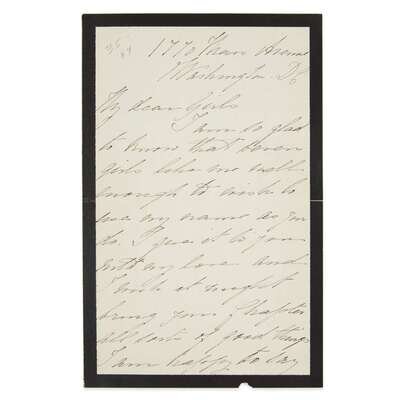 1770 Mass Avenue
Washington DC
My dear Girls
I am so glad
to know that seven
girls like me well
enough to wish to
use my name as you
do. I give it to you
with my love and
I wish it might
bring your Chapter
all sorts of good things
I am happy to say